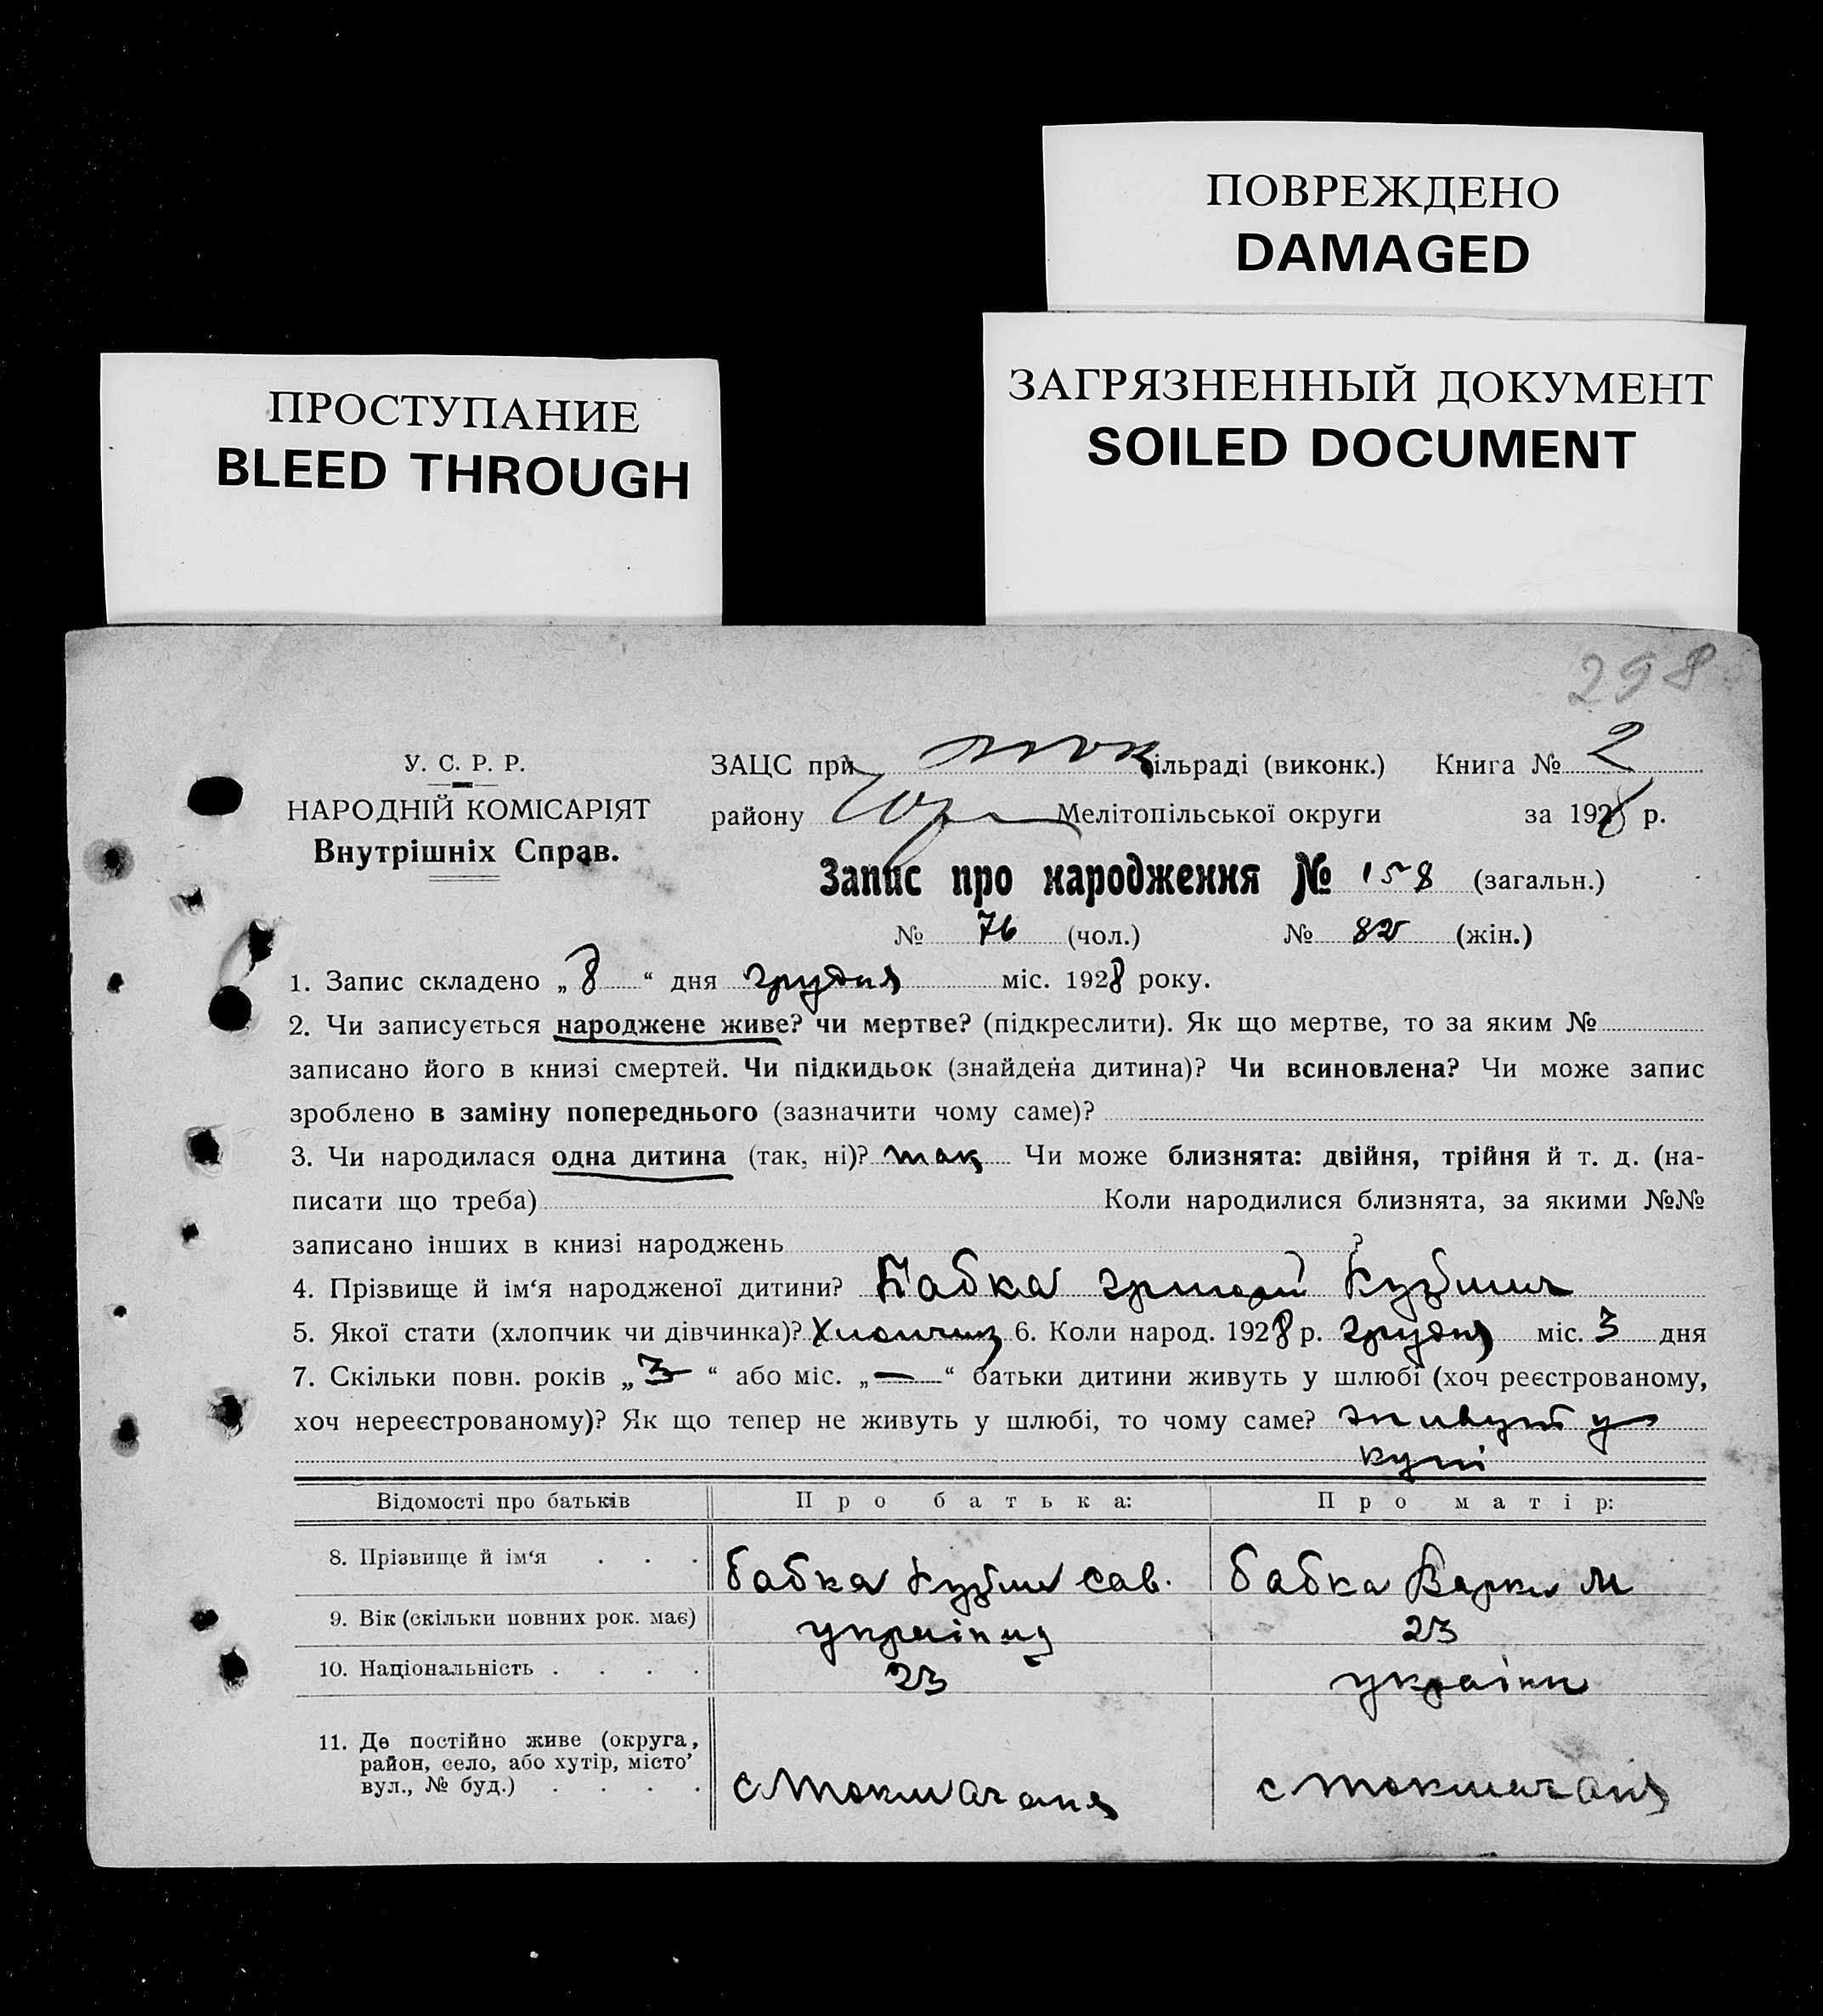 ПОВРЕЖДЕНО
DAMAGED
ЗАГРЯЗНЕННЫЙ ДОКУМЕНТ
SOILED DOCUMENT
ПРОСТУПАНИЕ
BLEED THROUGH
298
У. С. Р. Р.
НАРОДНІЙ КОМІСАРІЯТ
Внутрішніх Справ.
ЗАЦС при Ток ільраді (виконк.) Книга № 2
району Мелітопільської округи за 1928 р.
Запис про народження № 158 (загальн.)
№ 76 (чол.) № 82 (жін.)
1. Запис складено „ 8 “ дня грудня міс. 1928 року.
2. Чи записується народжене живе? чи мертве? (підкреслити). Як що мертве, то за яким №
записано його в книзі смертей. Чи підкидьок (знайдена дитина)? Чи всиновлена? Чи може запис
зроблено в заміну попереднього (зазначити чому саме)?
3. Чи народилася одна дитина (так, ні)? так Чи може близнята: двійня, трійня й т. д. (на-
писати що треба) Коли народилися близнята, за якими №№
записано інших в книзі народжень ?
4. Прізвище й ім‘я народженої дитини? Бабка Кузьмич
5. Якої стати (хлопчик чи дівчинка)? Хлопчик 6. Коли народ. 1928 р. грудня міс. 3 дня
7. Скільки повн. років „ 3 “ або міс. „ — “ батьки дитини живуть у шлюбі (хоч реєстрованому,
хоч нереєстрованому)? Як що тепер не живуть у шлюбі, то чому саме? живуть у
купі
Відомості про батьків Про батька: Про матір:
8. Прізвище й ім‘я . . . бабка Кузьма Сав. бабка Варка М
9. Вік (скільки повних рок. має) українец 23
10. Національність . . . . 23 україн
11. Де постійно живе (округа,
район, село, або хутір, місто’
вул., № буд.) . . . . с Токмачана с Токмачана